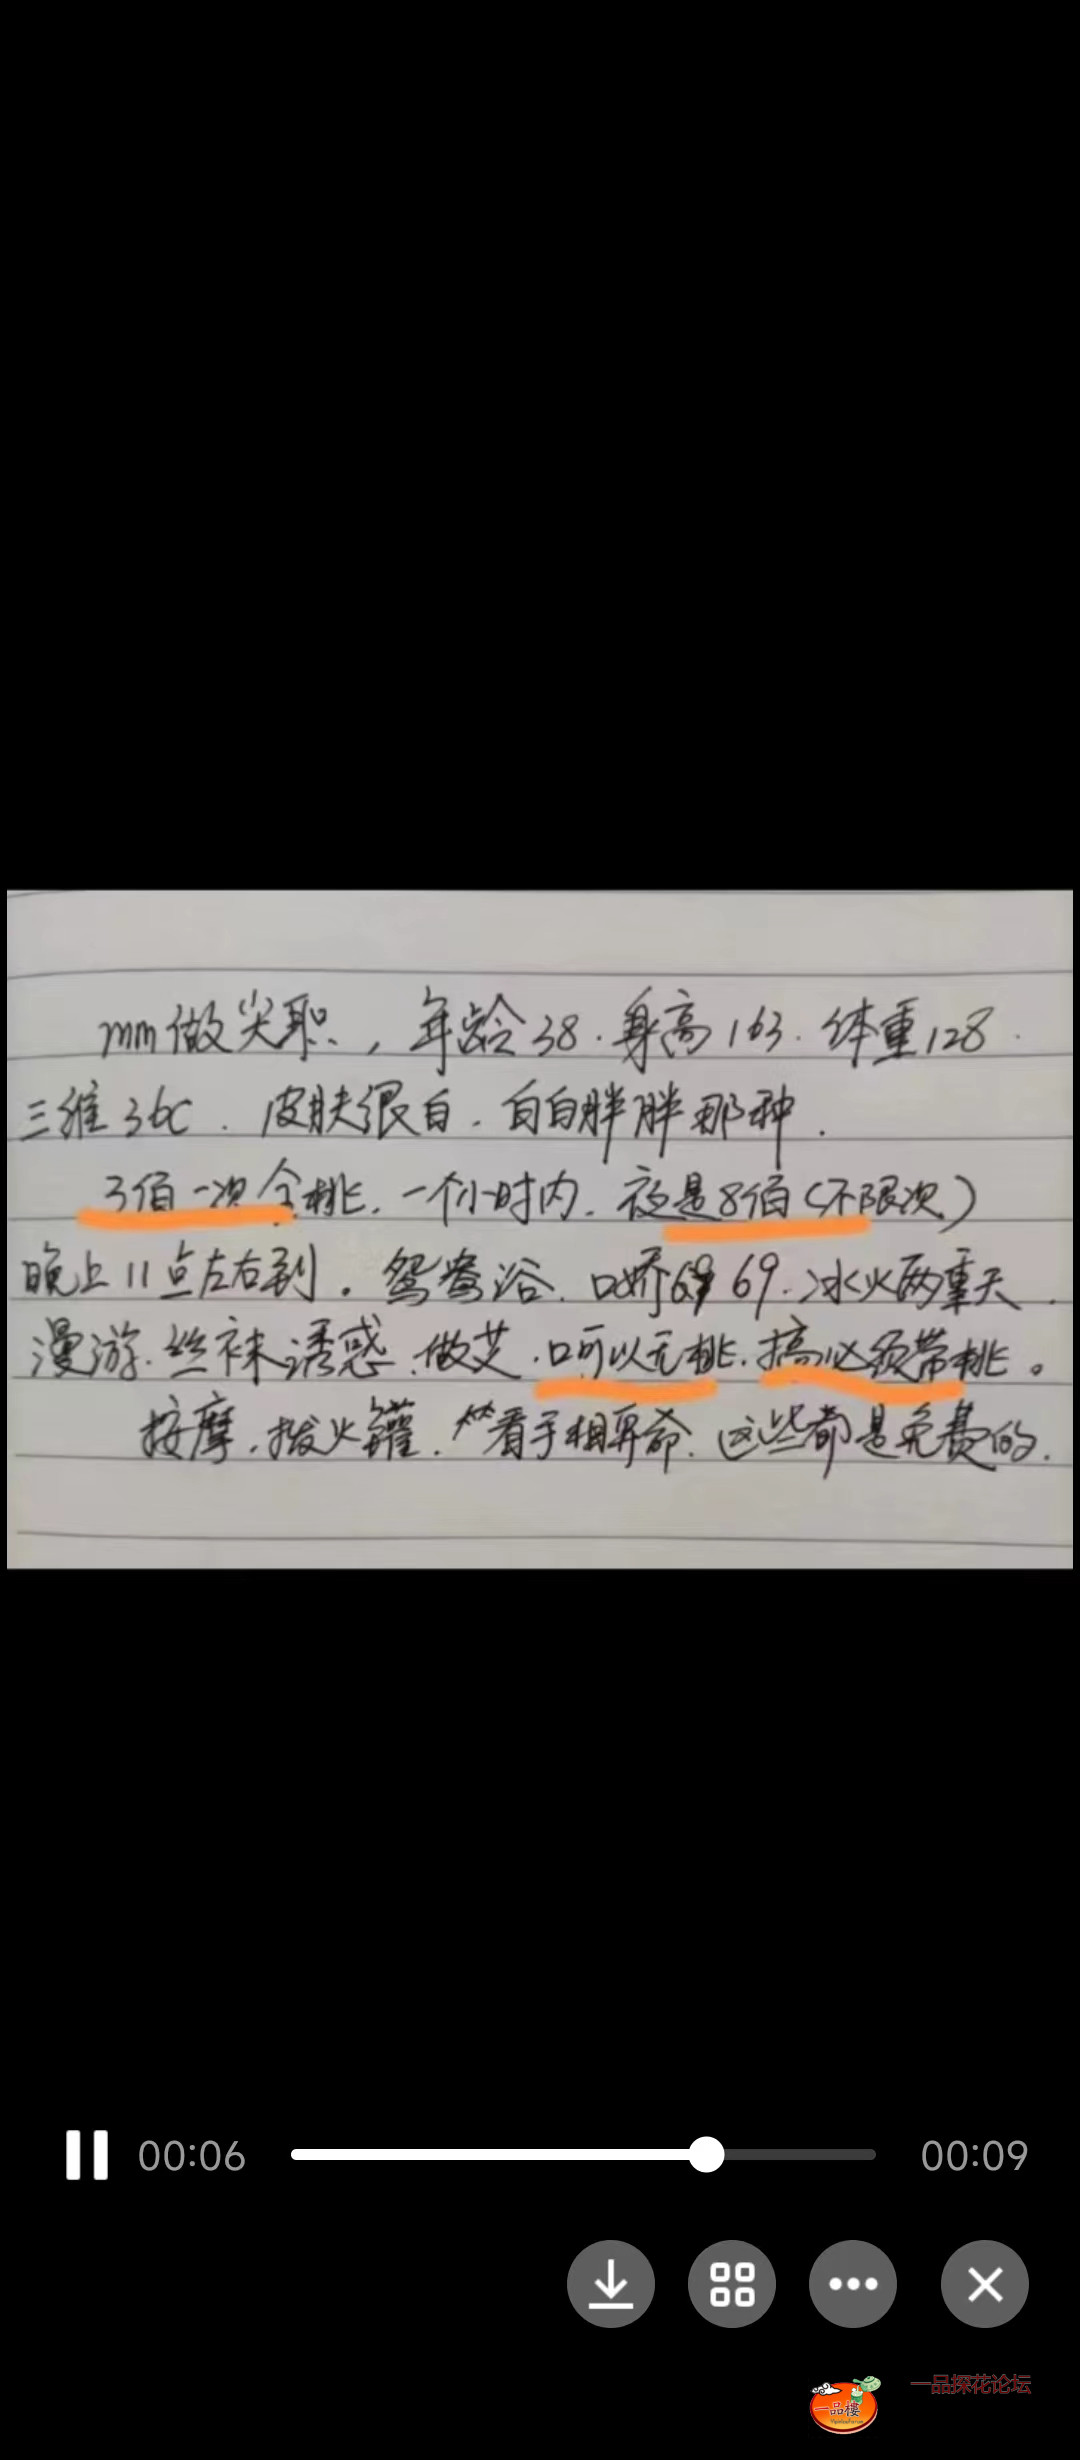 mm做尖职，年龄38．身高163．体重128．
三维36C．皮肤很白．白白胖胖那种．
3佰一次全桃．一个小时内．夜是8佰（不限次）
晚上11点左右到。鸳鸯浴．口娇69 69．冰火两重天．
漫游．丝袜诱惑．做艾．口可以无桃．搞必须带桃。
按摩．拔火罐．看手相算命．这些都是免费的．
00:06
00:09
一品楼
一品探花论坛